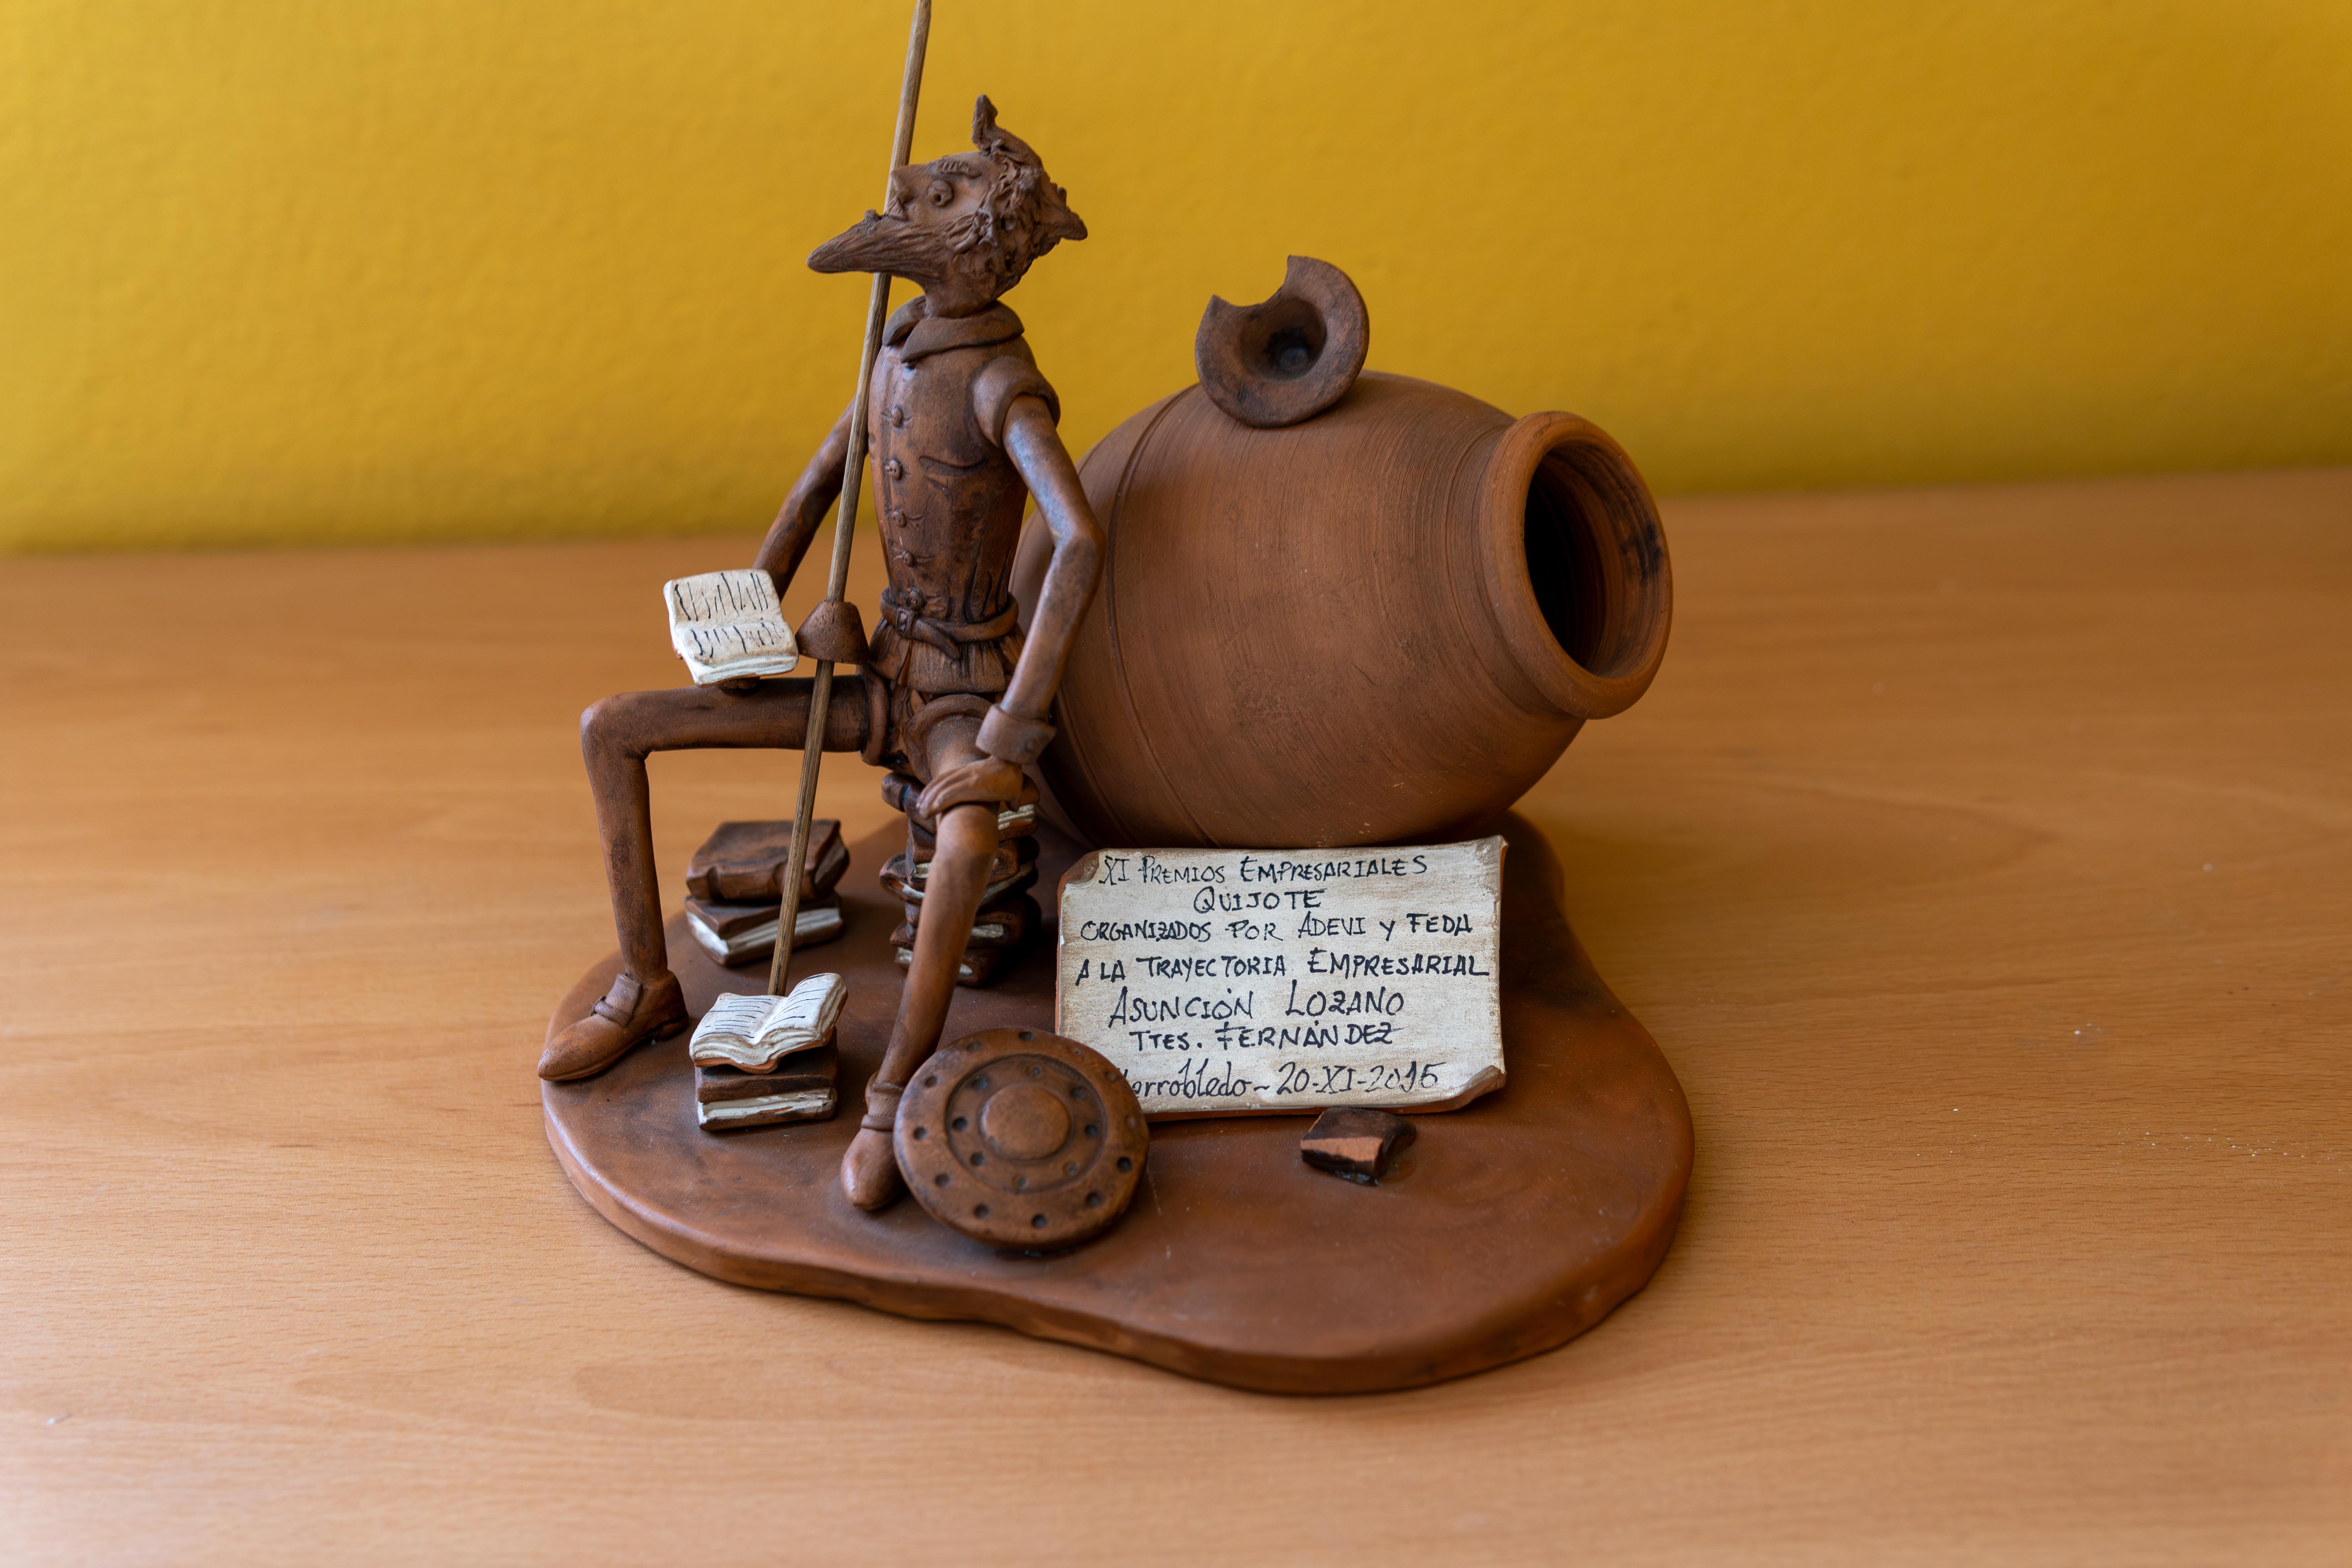 XI PREMIOS EMPRESARIALES
QUIJOTE
ORGANIZADOS POR ADEVI Y FEDA
A LA TRAYECTORIA EMPRESARIAL
ASUNCIÓN LOZANO
TTES. FERNÁNDEZ
20-XI-2015